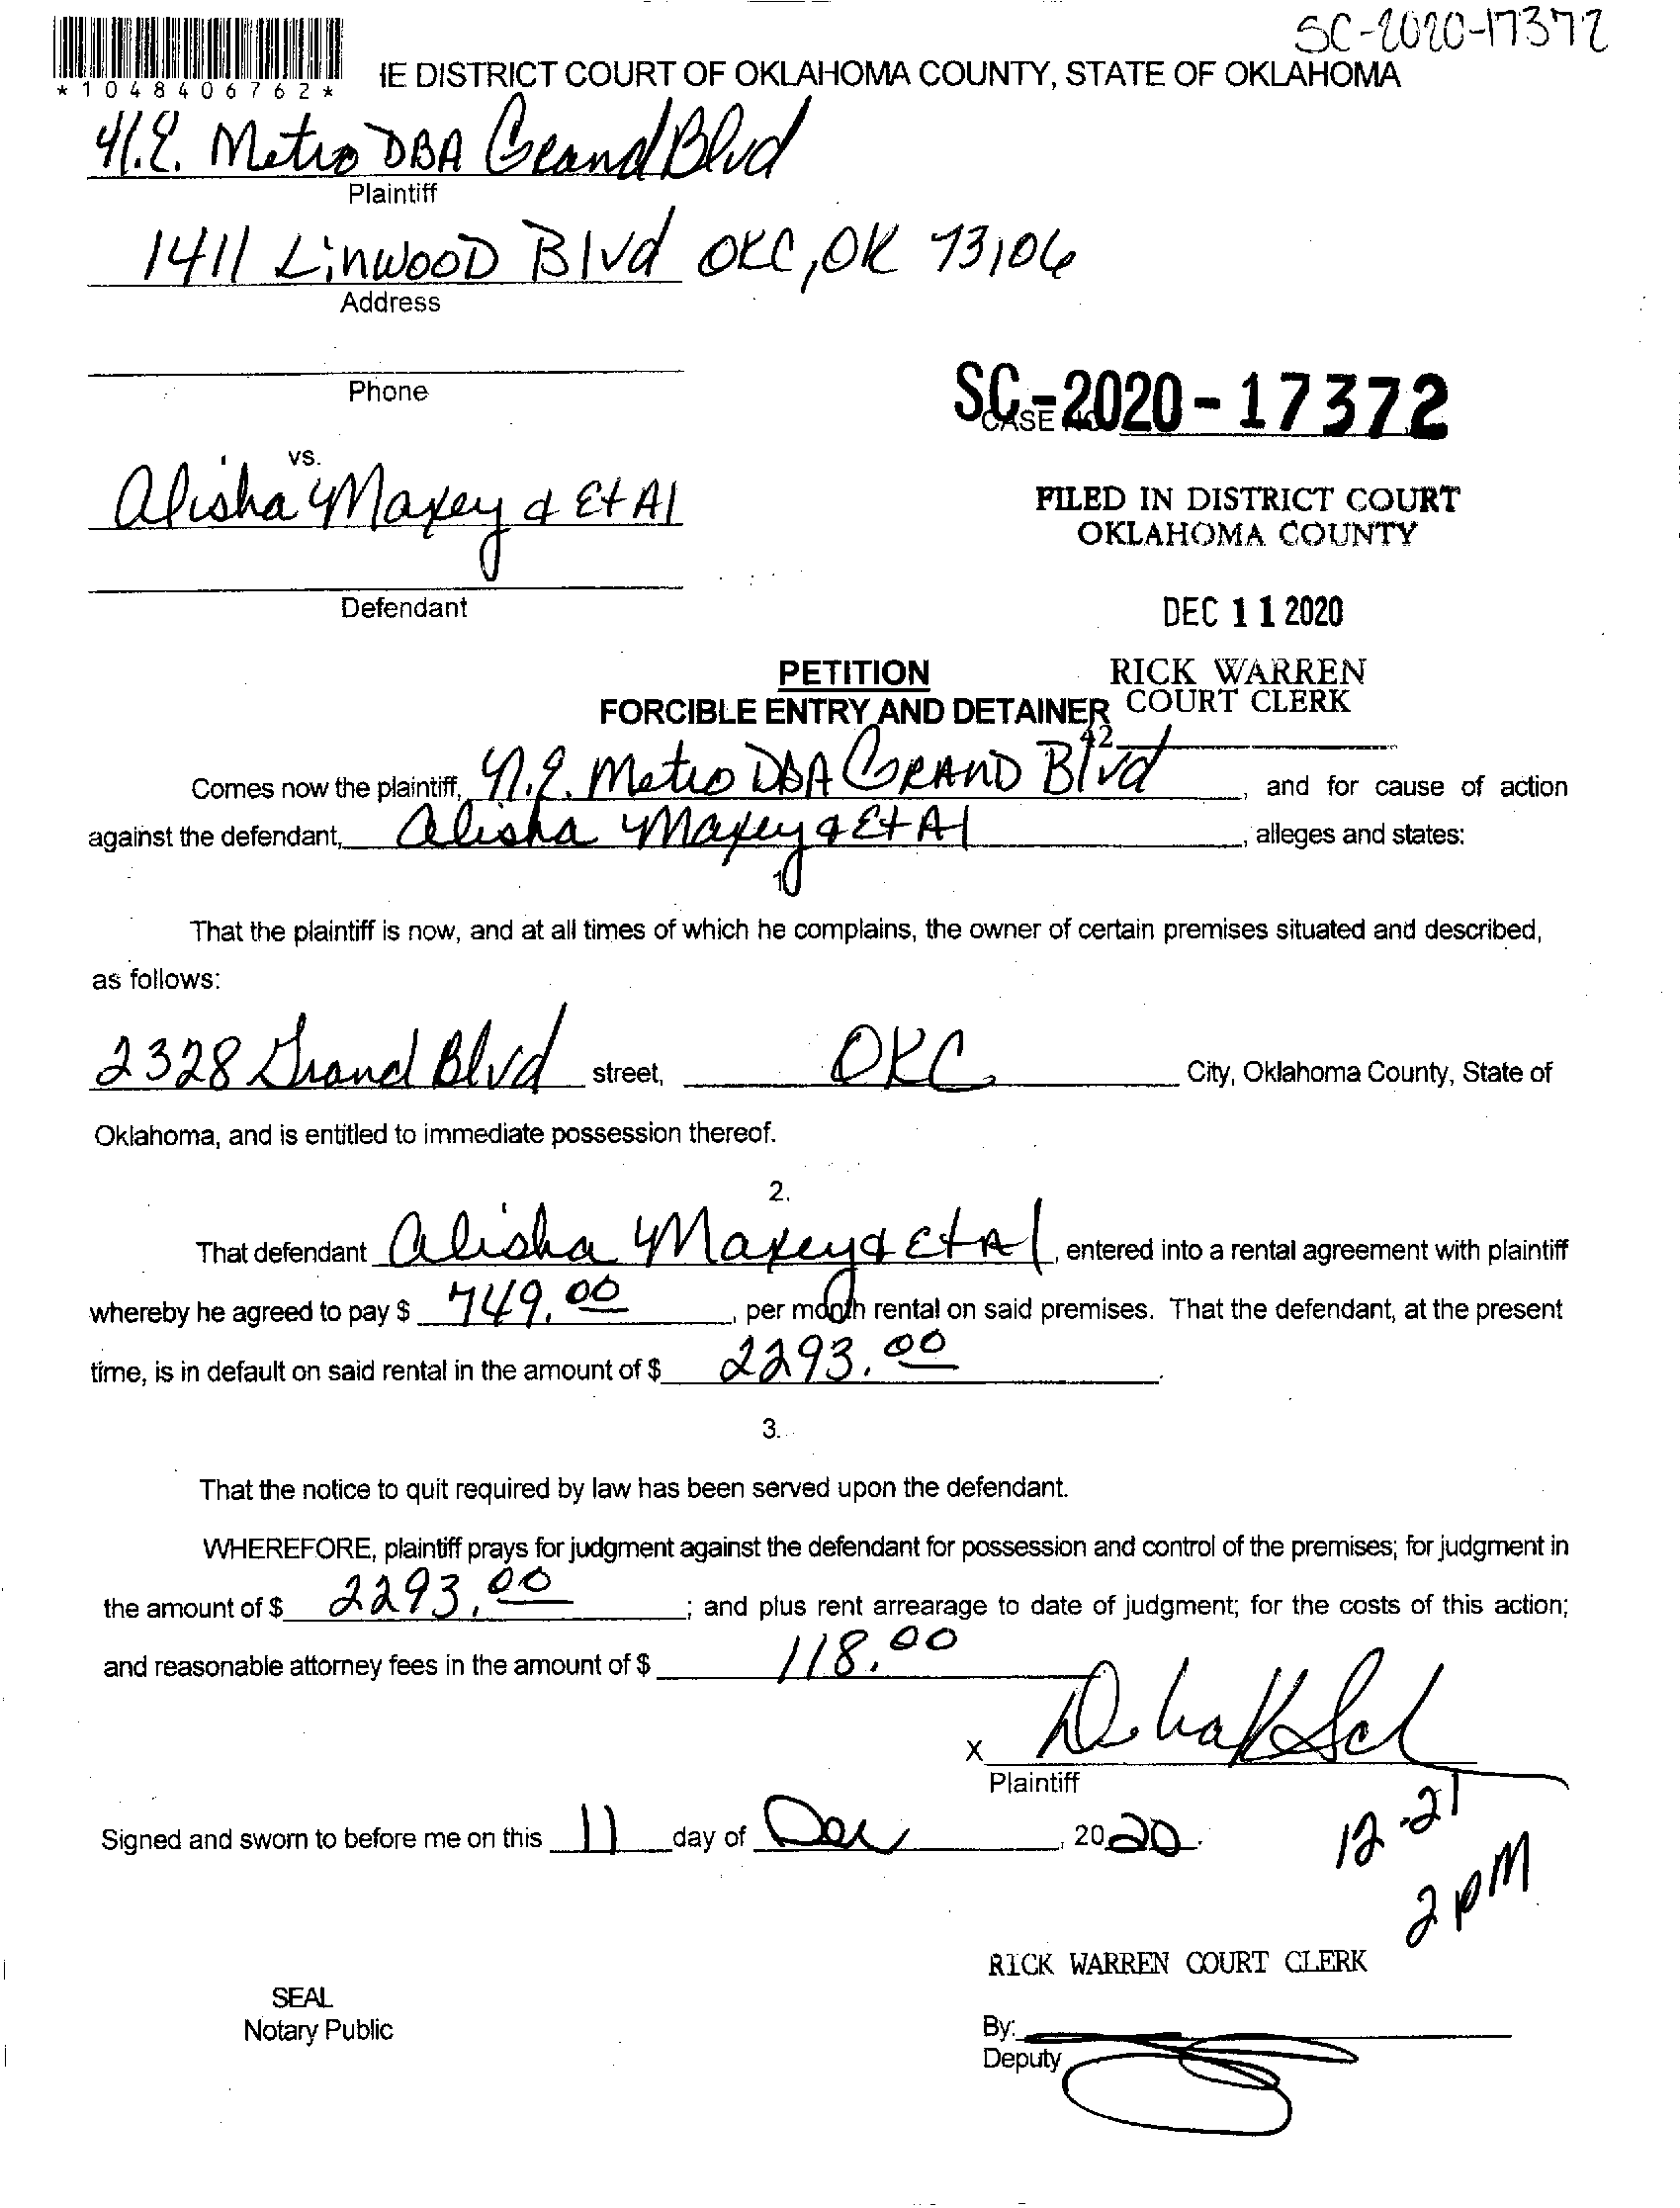 SC-2020-17372
*1048406762*
IE DISTRICT COURT OF OKLAHOMA COUNTY, STATE OF OKLAHOMA
Metro DBA Grand Blvd
Plaintiff
1411 LinwooD Blvd OKC, OK 73106
Address
Phone
SC-2020-17372
CASE NO
vs.
Alisha Maxey & Et Al
FILED IN DISTRICT COURT
OKLAHOMA COUNTY
Defendant
DEC 11 2020
PETITION
RICK WARREN
FORCIBLE ENTRY AND DETAINER
COURT CLERK
42
Comes now the plaintiff, Metro DBA GRAND Blvd, and for cause of action
against the defendant, Alisha Maxey & Et Al, alleges and states:
1
That the plaintiff is now, and at all times of which he complains, the owner of certain premises situated and described,
as follows:
2328 Grand Blvd street, OKC City, Oklahoma County, State of
Oklahoma, and is entitled to immediate possession thereof.
2.
That defendant Alisha Maxey & Et Al, entered into a rental agreement with plaintiff
whereby he agreed to pay $ 749.00, per month rental on said premises. That the defendant, at the present
time, is in default on said rental in the amount of $ 2293.00.
3.
That the notice to quit required by law has been served upon the defendant.
WHEREFORE, plaintiff prays for judgment against the defendant for possession and control of the premises; for judgment in
the amount of $ 2293.00; and plus rent arrearage to date of judgment; for the costs of this action;
and reasonable attorney fees in the amount of $ 118.00
X
Plaintiff
Signed and sworn to before me on this 11 day of Dec, 2020.
12-21
2 pM
RICK WARREN COURT CLERK
SEAL
Notary Public
By:
Deputy